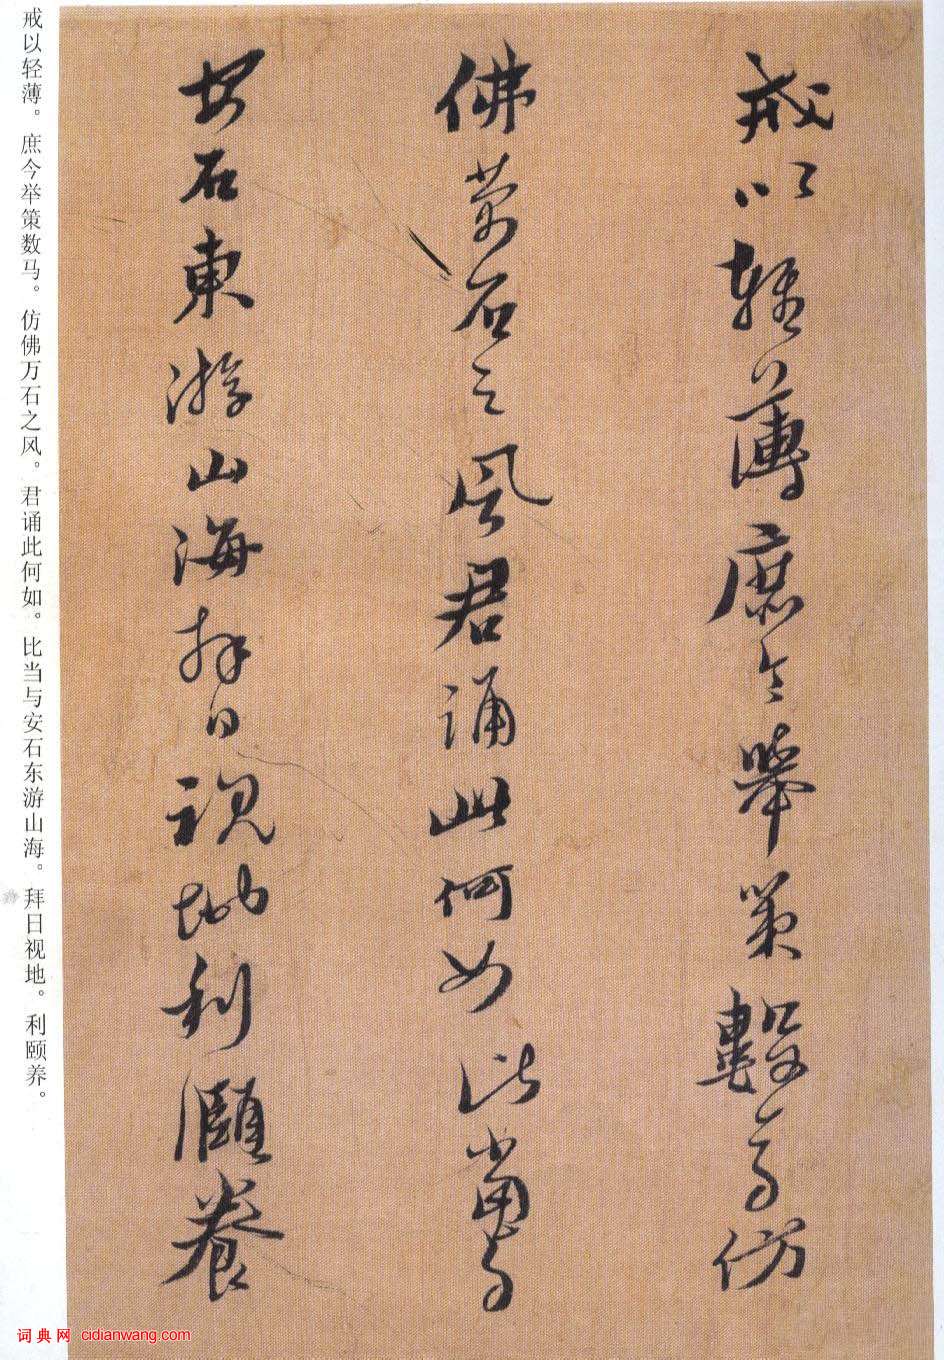 戒以輕薄庶今舉策數馬仿
佛萬石之風君誦此何如比當與
安石東游山海拜日視地利頤養
戒以轻薄。庶今举策数马。仿佛万石之风。君诵此何如。比当与安石东游山海。拜日视地。利颐养。
词典网 cidianwang.com